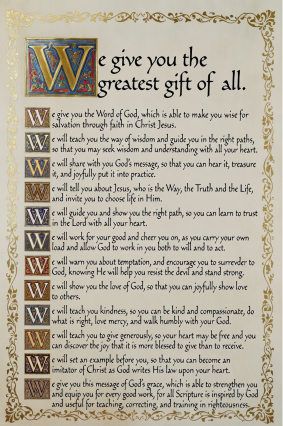 We give you the
greatest gift of all.
We give you the Word of God, which is able to make you wise for
salvation through faith in Christ Jesus.
We will teach you the way of wisdom and guide you in the right paths,
so that you may seek wisdom and understanding with all your heart.
We will share with you God's message, so that you can hear it, treasure
it, and joyfully put it into practice.
We will tell you about Jesus, who is the Way, the Truth and the Life,
and invite you to choose life in Him.
We will guide you and show you the right path, so you can learn to trust
in the Lord with all your heart.
We will work for your good and cheer you on, as you carry your own
load and allow God to work in you both to will and to act.
We will warn you about temptation, and encourage you to surrender to
God, knowing He will help you resist the devil and stand strong.
We will show you the love of God, so that you can joyfully show love
to others.
We will teach you kindness, so you can be kind and compassionate, do
what is right, love mercy, and walk humbly with your God.
We will teach you to give generously, so your heart may be free and you
can discover the joy that it is more blessed to give than to receive.
We will set an example before you, so that you can become an
imitator of Christ as God writes His law upon your heart.
We give you this message of God's grace, which is able to strengthen you
and equip you for every good work, for all Scripture is inspired by God
and useful for teaching, correcting, and training in righteousness.